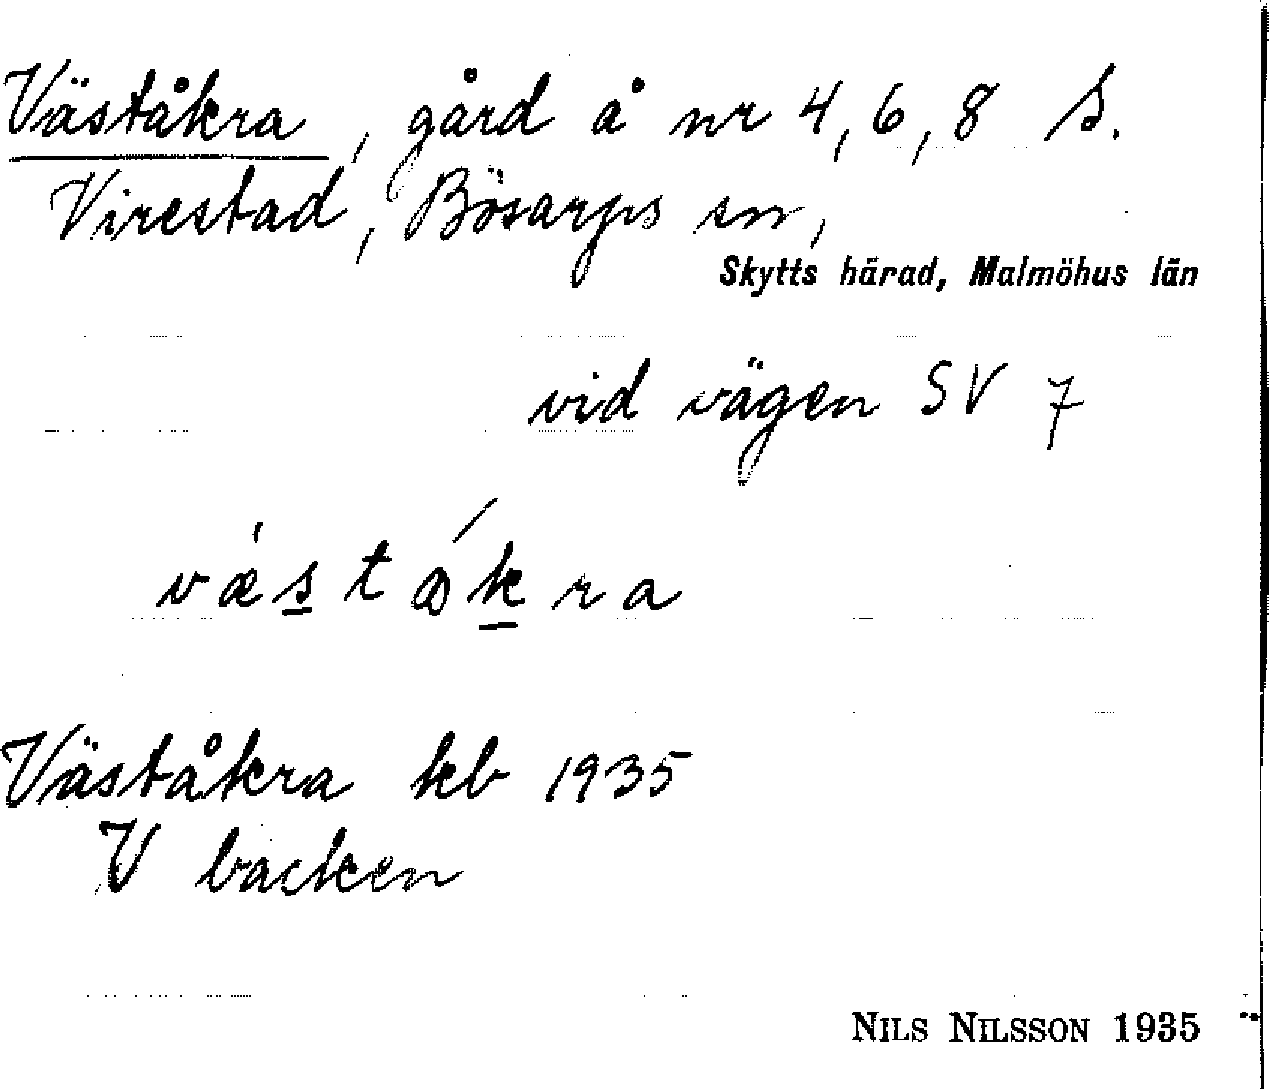 Väståkra, gård å nr 4, 6, 8 S.
Virestad, Bösarps sn,
Skytts härad, Malmöhus län
vid vägen SV 7
væ̀st ꜵ́kra
Väståkra kb 1935
V backen
NILS NILSSON 1935